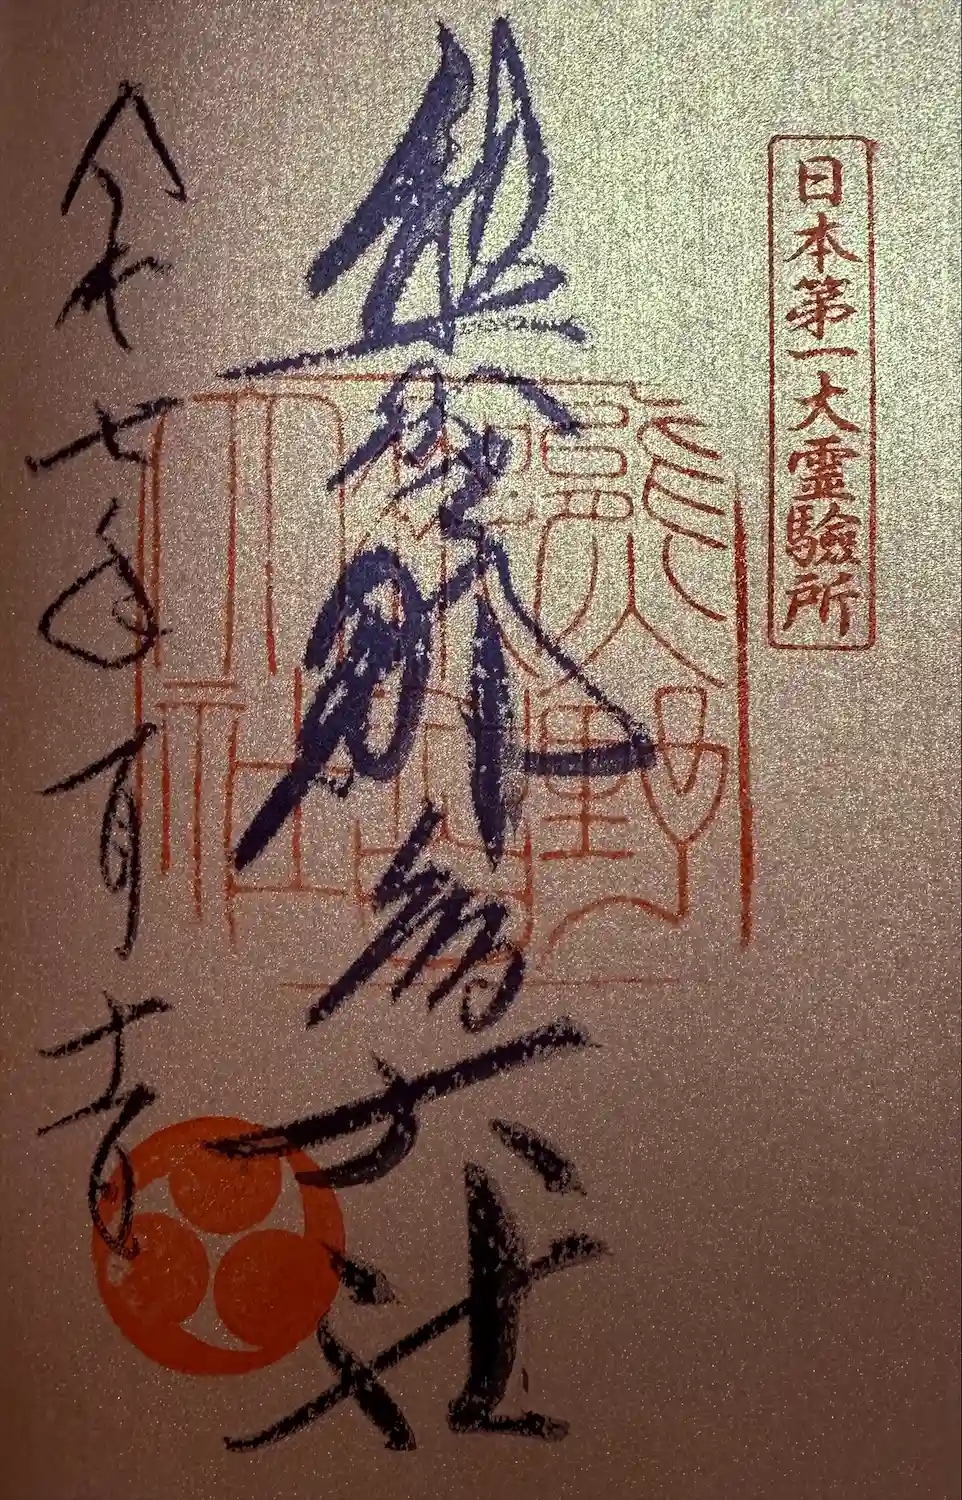 日本第一大霊驗所
熊野那智大社
熊野
大社
令和七年月十日